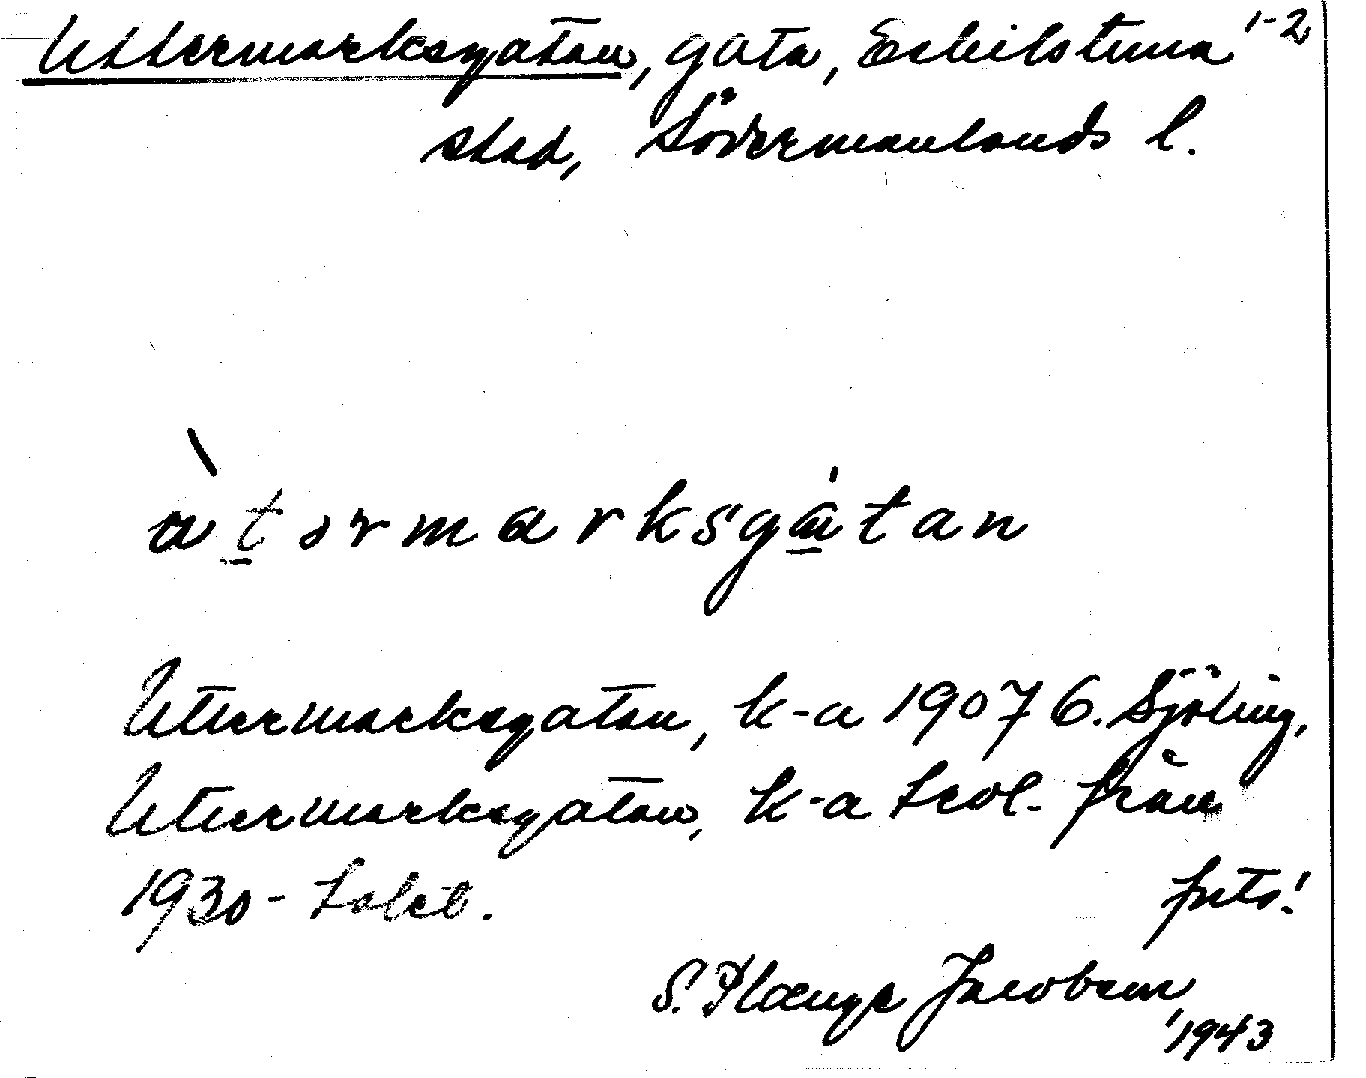 Uttermarksgatan, gata, Eskilstuna 1-2
stad, Södermanlands l.
ù t ər m a r k s g á t a n
Uttermarksgatan, k-a 1907 G. Sjöling,
Uttermarksgatan, k-a trol. från
1930-talet. fnto!
S. Plænge Jacobsen
1943